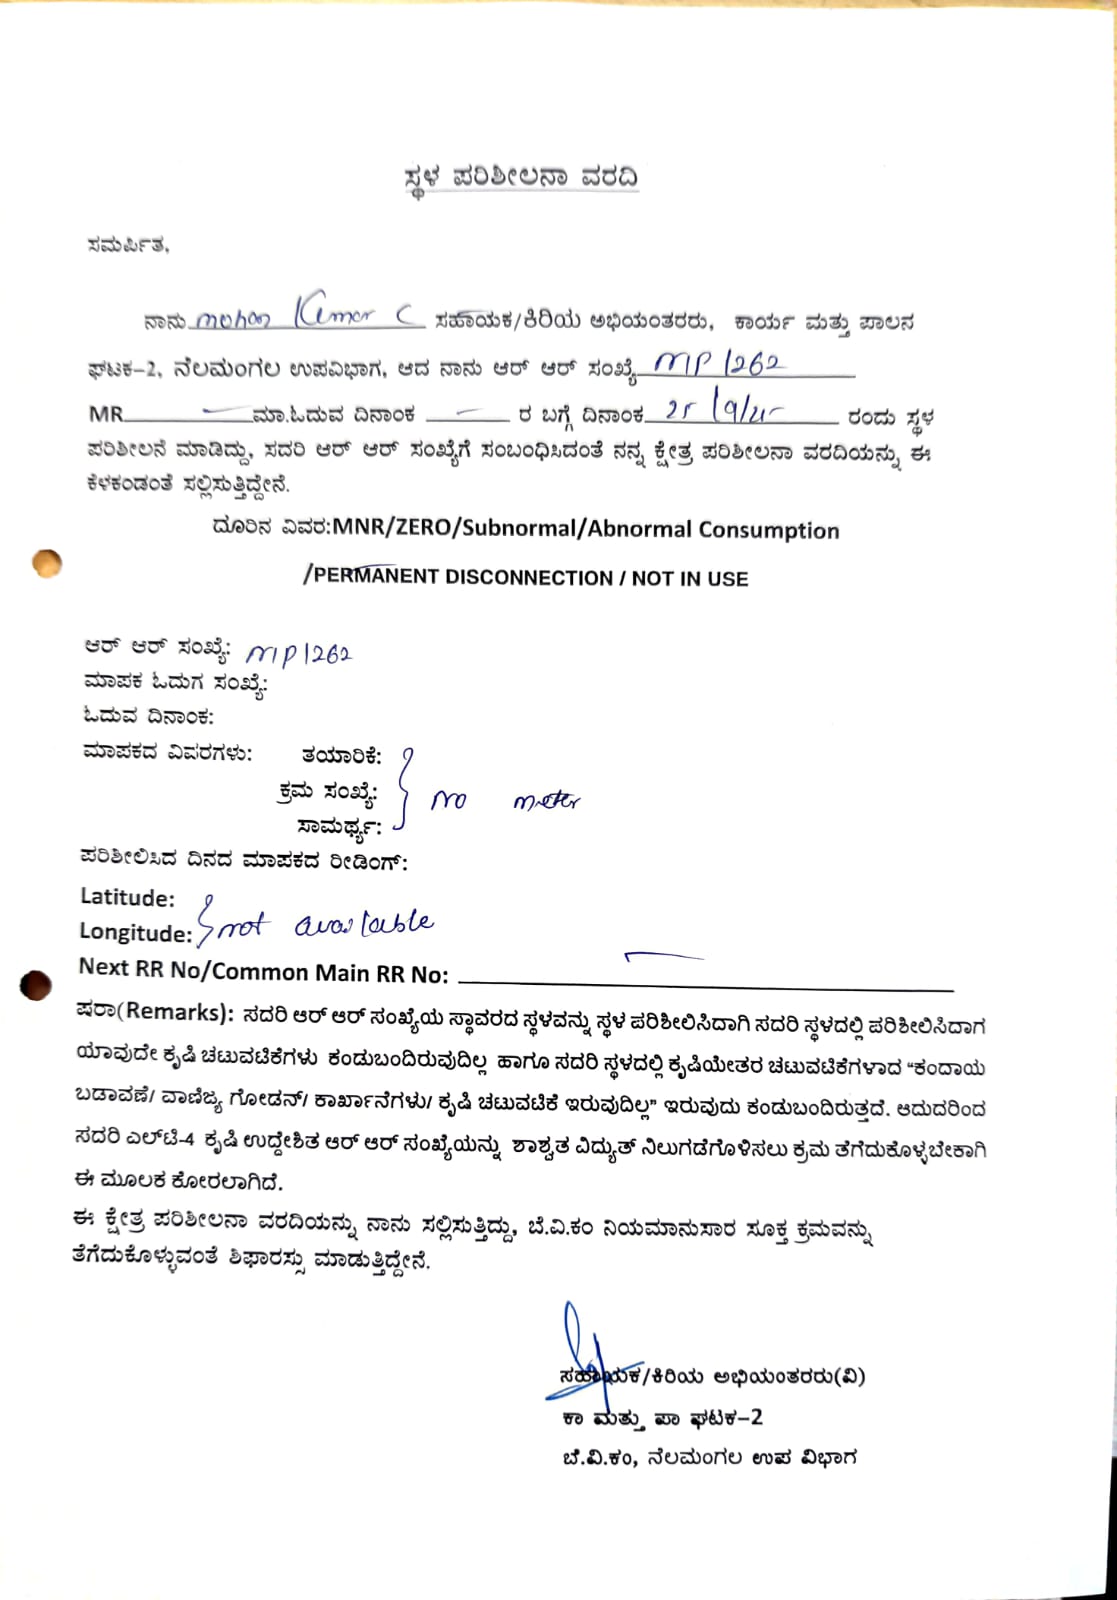 ಸ್ಥಳ ಪರಿಶೀಲನಾ ವರದಿ
ಸಮರ್ಪಿತ,
ನಾನು mohan Kumar C ಸಹಾಯಕ/ಕಿರಿಯ ಅಭಿಯಂತರರು, ಕಾರ್ಯ ಮತ್ತು ಪಾಲನ
ಘಟಕ-2, ನೆಲಮಂಗಲ ಉಪವಿಭಾಗ, ಆದ ನಾನು ಆರ್ ಆರ್ ಸಂಖ್ಯೆ MP 1262
MR____—____ಮಾ.ಓದುವ ದಿನಾಂಕ ___—___ ರ ಬಗ್ಗೆ ದಿನಾಂಕ 25/9/25 ರಂದು ಸ್ಥಳ
ಪರಿಶೀಲನೆ ಮಾಡಿದ್ದು, ಸದರಿ ಆರ್ ಆರ್ ಸಂಖ್ಯೆಗೆ ಸಂಬಂಧಿಸಿದಂತೆ ನನ್ನ ಕ್ಷೇತ್ರ ಪರಿಶೀಲನಾ ವರದಿಯನ್ನು ಈ
ಕೆಳಕಂಡಂತೆ ಸಲ್ಲಿಸುತ್ತಿದ್ದೇನೆ.
ದೂರಿನ ವಿವರ:MNR/ZERO/Subnormal/Abnormal Consumption
/PERMANENT DISCONNECTION / NOT IN USE
ಆರ್ ಆರ್ ಸಂಖ್ಯೆ: MP1262
ಮಾಪಕ ಓದುಗ ಸಂಖ್ಯೆ:
ಓದುವ ದಿನಾಂಕ:
ಮಾಪಕದ ವಿವರಗಳು: ತಯಾರಿಕೆ:
ಕ್ರಮ ಸಂಖ್ಯೆ: no meter
ಸಾಮರ್ಥ್ಯ:
ಪರಿಶೀಲಿಸಿದ ದಿನದ ಮಾಪಕದ ರೀಡಿಂಗ್:
Latitude:
Longitude: not available
Next RR No/Common Main RR No: ____—____
ಷರಾ(Remarks): ಸದರಿ ಆರ್ ಆರ್ ಸಂಖ್ಯೆಯ ಸ್ಥಾವರದ ಸ್ಥಳವನ್ನು ಸ್ಥಳ ಪರಿಶೀಲಿಸಿದಾಗಿ ಸದರಿ ಸ್ಥಳದಲ್ಲಿ ಪರಿಶೀಲಿಸಿದಾಗ
ಯಾವುದೇ ಕೃಷಿ ಚಟುವಟಿಕೆಗಳು ಕಂಡುಬಂದಿರುವುದಿಲ್ಲ ಹಾಗೂ ಸದರಿ ಸ್ಥಳದಲ್ಲಿ ಕೃಷಿಯೇತರ ಚಟುವಟಿಕೆಗಳಾದ "ಕಂದಾಯ
ಬಡಾವಣೆ/ ವಾಣಿಜ್ಯ ಗೋಡನ್/ ಕಾರ್ಖಾನೆಗಳು/ ಕೃಷಿ ಚಟುವಟಿಕೆ ಇರುವುದಿಲ್ಲ" ಇರುವುದು ಕಂಡುಬಂದಿರುತ್ತದೆ. ಆದುದರಿಂದ
ಸದರಿ ಎಲ್‌ಟಿ-4 ಕೃಷಿ ಉದ್ದೇಶಿತ ಆರ್ ಆರ್ ಸಂಖ್ಯೆಯನ್ನು ಶಾಶ್ವತ ವಿದ್ಯುತ್ ನಿಲುಗಡೆಗೊಳಿಸಲು ಕ್ರಮ ತೆಗೆದುಕೊಳ್ಳಬೇಕಾಗಿ
ಈ ಮೂಲಕ ಕೋರಲಾಗಿದೆ.
ಈ ಕ್ಷೇತ್ರ ಪರಿಶೀಲನಾ ವರದಿಯನ್ನು ನಾನು ಸಲ್ಲಿಸುತ್ತಿದ್ದು, ಬೆ.ವಿ.ಕಂ ನಿಯಮಾನುಸಾರ ಸೂಕ್ತ ಕ್ರಮವನ್ನು
ತೆಗೆದುಕೊಳ್ಳುವಂತೆ ಶಿಫಾರಸ್ಸು ಮಾಡುತ್ತಿದ್ದೇನೆ.
ಸಹಾಯಕ/ಕಿರಿಯ ಅಭಿಯಂತರರು(ವಿ)
ಕಾ ಮತ್ತು ಪಾ ಘಟಕ-2
ಬೆ.ವಿ.ಕಂ, ನೆಲಮಂಗಲ ಉಪ ವಿಭಾಗ